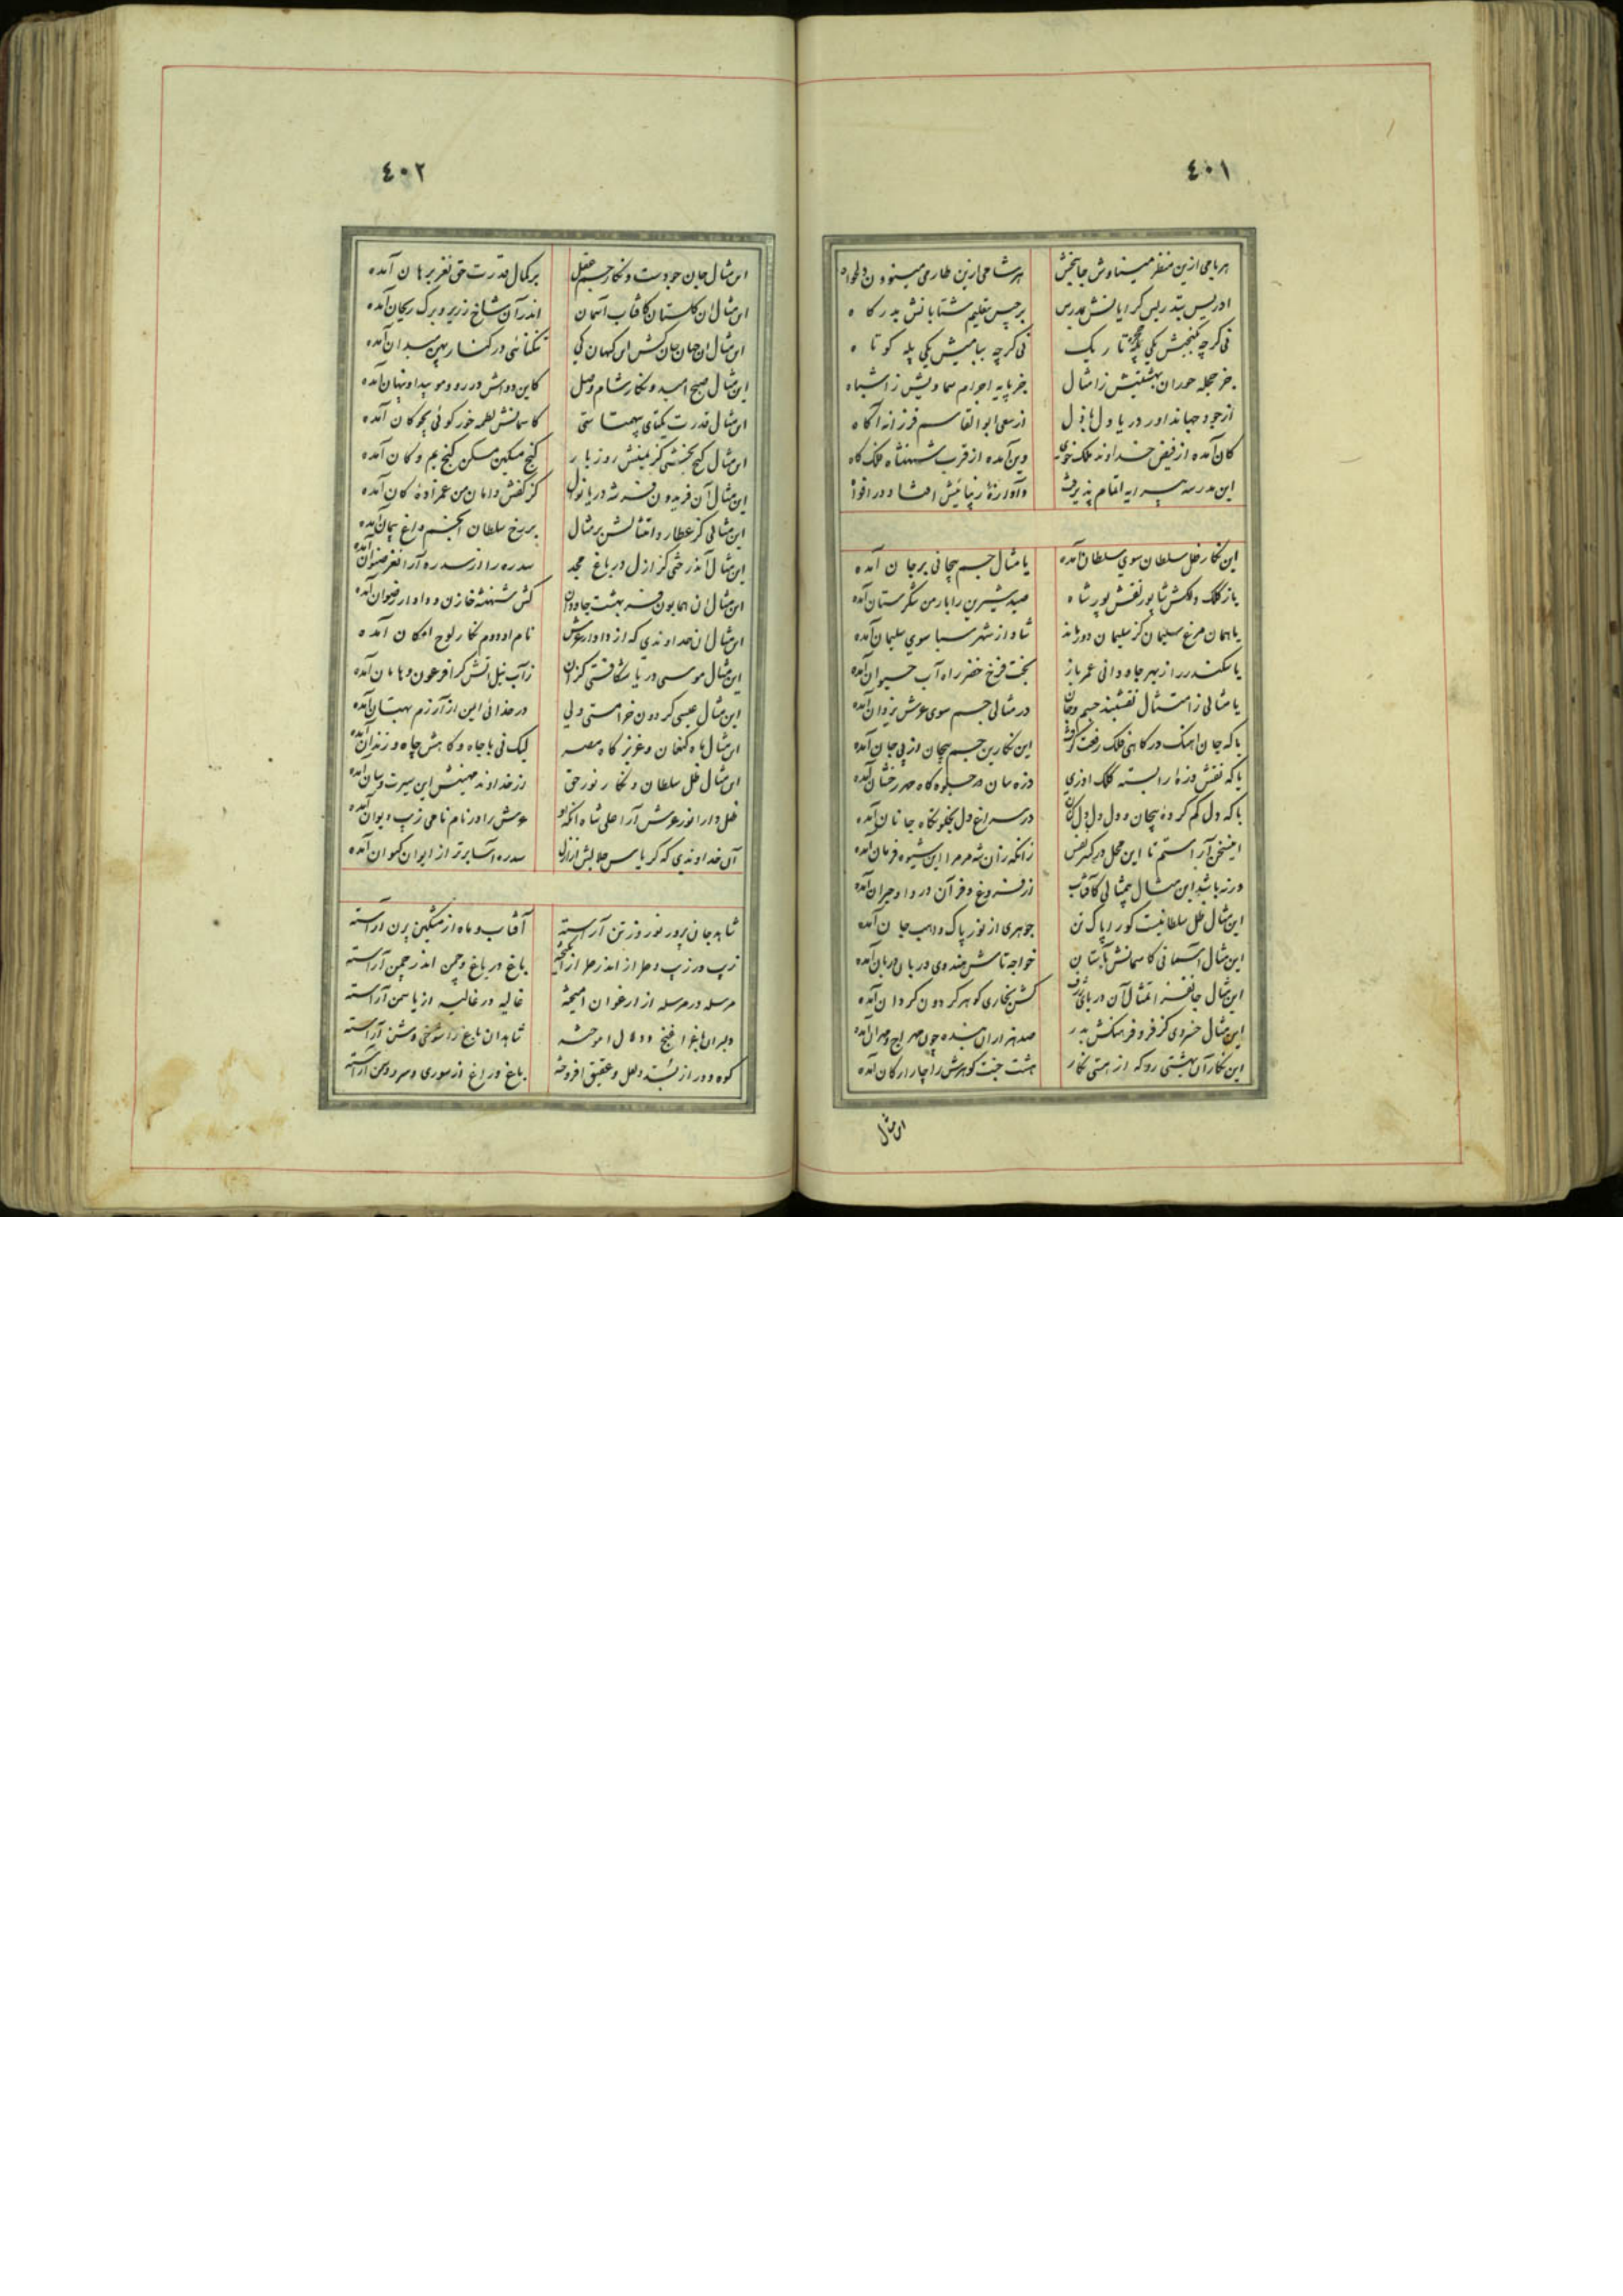 ٤٠١
هر بامی ازین منظر میناوش جانبخش هر شامی ازین طارمی مینو ون دلخواه
ادریس بتدریس گرایانش بمدرس برجیس بتعلیم شتابانش بدرگاه
نی گرچه بگنجش یکی حجره تاریک نی گرچه ببامیش یکی پله کوتاه
جز حجله حوران بهشتیش زامثال جز پایه اجرام سماویش زاشباه
از جود جهاندار دریا دل باذل از سعی ابوالقاسم فرزانه آگاه
کان آمده از فیض خداوند ملک خوی وین آمده از قرب شهنشاه فلک گاه
این مدرسه پیرایه اتمام پذیرفت وآوازه زیبائیش افتاد در افواه
این نگار ظل سلطان سوی سلطان آمده یا مثال جسم بیجانی بر جان آمده
یا ز کلک دلکش شاپور نقش پور شاه صید شیرین را بارمن شکرستان آمده
یا همان مرغ سلیمان کز سلیمان دور ماند شاد از شهر سبا سوی سلیمان آمده
یا سکندر را ز بهر جاودانی عمر باز بخت فرخ خضر راه آب حیوان آمده
یا مثالی زامتثال نقشبند جسم وجان در مثالی جسم سوی عرش یزدان آمده
یا که جان آهنگ درگاهی فلک رفعت گرفت این نگارین جسم بیجان از پی جان آمده
یا که نقش ذره را بسته کلک آذری ذره سان در جلوه گاه مهر رخشان آمده
یا که دل گم کرده بیجان و دل در سراغ دل بخلوتگاه جانان آمده
اینسخن آراستم تا این محل زانکه زان شه مر مرا این شیوه فرمان آمده
ورنه باشد این مثال بیمثالی کآفتاب از فروغ و فر آن در وادحیران آمده
این مثال ظل سلطانیست کو را پاک تن جوهری از نور پاک واهب جان آمده
این مثال آسمانی کاسمانش آستان خواجه تاش هندوی دربان آمده
این مثال جانفزا تمثال آن دریای ژرف کش بخاری گوهر گردون گردان آمده
این مثال خسروی کز فر و فرهنگش بدر صد هزاران بنده چون مهراج و مهران آمده
این نگار آن بهشتی رو که از هستی نگار هشت جنت گوهرش را چار ارکان آمده
این مثال
٤٠٢
این مثال جان جودست و نگار جسم عقل بر کمال قدرت حق نغز برهان آمده
این مثال آن گلستان کافتاب آسمان اندر آن شاخ زریر و برگ ریحان آمده
این مثال آن جهان جان کش این کیهان یکی تنگنائی در کنار پهن میدان آمده
این مثال صبح امید و نگار شام وصل کاین دو اش در رو و مو پیدا و پنهان آمده
این مثال قدرت یکتای بیهمتاستی کآسمانش لطمه خور گوئی بچوگان آمده
این مثال گنج بخشی کز یمینش روز بار گنج مسکین مسکن گنج یم و کان آمده
این مثال آن فریدون فر شه دریا نوال کز کفش دامان من عمرآوه کان آمده
این مثالی کز عطارد امتثالش بر مثال بر رخ سلطان انجم داغ پیمان آمده
این مثال آندرختی کز ازل در باغ مجد سدره را از سدره آرا نغز رضوان آمده
این مثال آن همایون فر بهشت جاودان کش شهنشه خازن و دادار رضوان آمده
این مثال آن خداوندی که از دادار عرش نام او دوم نگار لوح امکان آمده
این مثال موسی دریا شکافستی کز آن زآب نیل آتش گرا فرعون وهامان آمده
این مثال عیسی گردون خرامستی ولی در خدائی این از آزرم بهتان آمده
این مثال ماه کنعان و عزیز گاه مصر لیک نی با جاه و گاهش چاه و زندان آمده
این مثال ظل سلطان و نگار نور حق از خداوند مهینش این سیرت وسان آمده
ظل دارا نور عرش آرا علی شاه آنکه او عرش را در نام نامی زیب ایوان آمده
آن خداوندی که کریاس جلالش از ازل سدره آسا برتر از ایوان کیوان آمده
شاهد جان پرور نوروز تن آراسته آفتاب و ماه از مشگین پرن آراسته
زیب در زیب و طراز اندر طراز انگیخته باغ در باغ و چمن اندر چمن آراسته
مرسله در مرسله از ارغوان آمیخته غالیه در غالیه از یاسمن آراسته
دلبران باغ را غنج و دلال آموخته شاهدان باغ را شوخی و شن آراسته
کوه و در از بسد و لعل و عقیق افروخته باغ و راغ از سوری و سرو و سمن آراسته